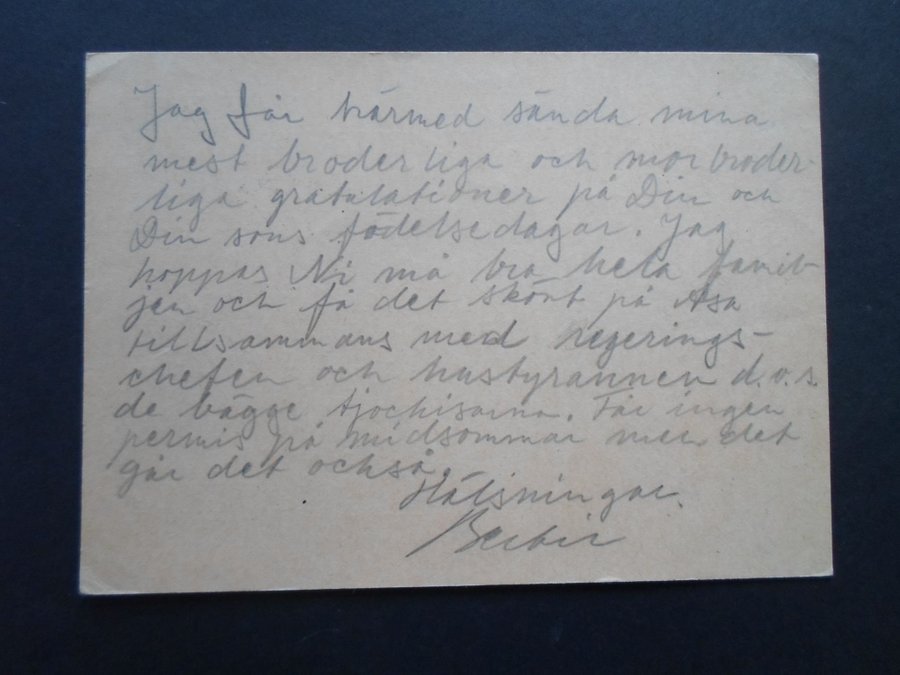 Jag får härmed sända mina
mest broderliga och morbroder-
liga gratulationer på Din och
Din sons födelsedagar. Jag
hoppas Ni må bra hela famil-
jen och få det skönt på Åsa
tillsammans med regerings-
chefen och hustyrannen d.v.s.
de bägge tjochisarna. Får ingen
permis på midsommar men det
går det också.
Hälsningar.